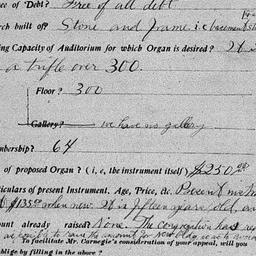 ee of Debt? Free of all debt.
rch built of? Stone and frame. i.e basement st
ing Capacity of Auditorium for which Organ is desired?
a trifle over 300.
Floor? 300
Gallery? we have no gallery
mbership? 64
of proposed Organ? (i, e, the instrument itself) $250.00
ticulars of present Instrument. Age, Price, etc. Present
$135.00 when new. is fifteen years old,
ount already raised? None. The congregation has
as could to raise the amount for
To facilitate Mr. Carnegie's consideration of your appeal, will you
blige by filling in the above?